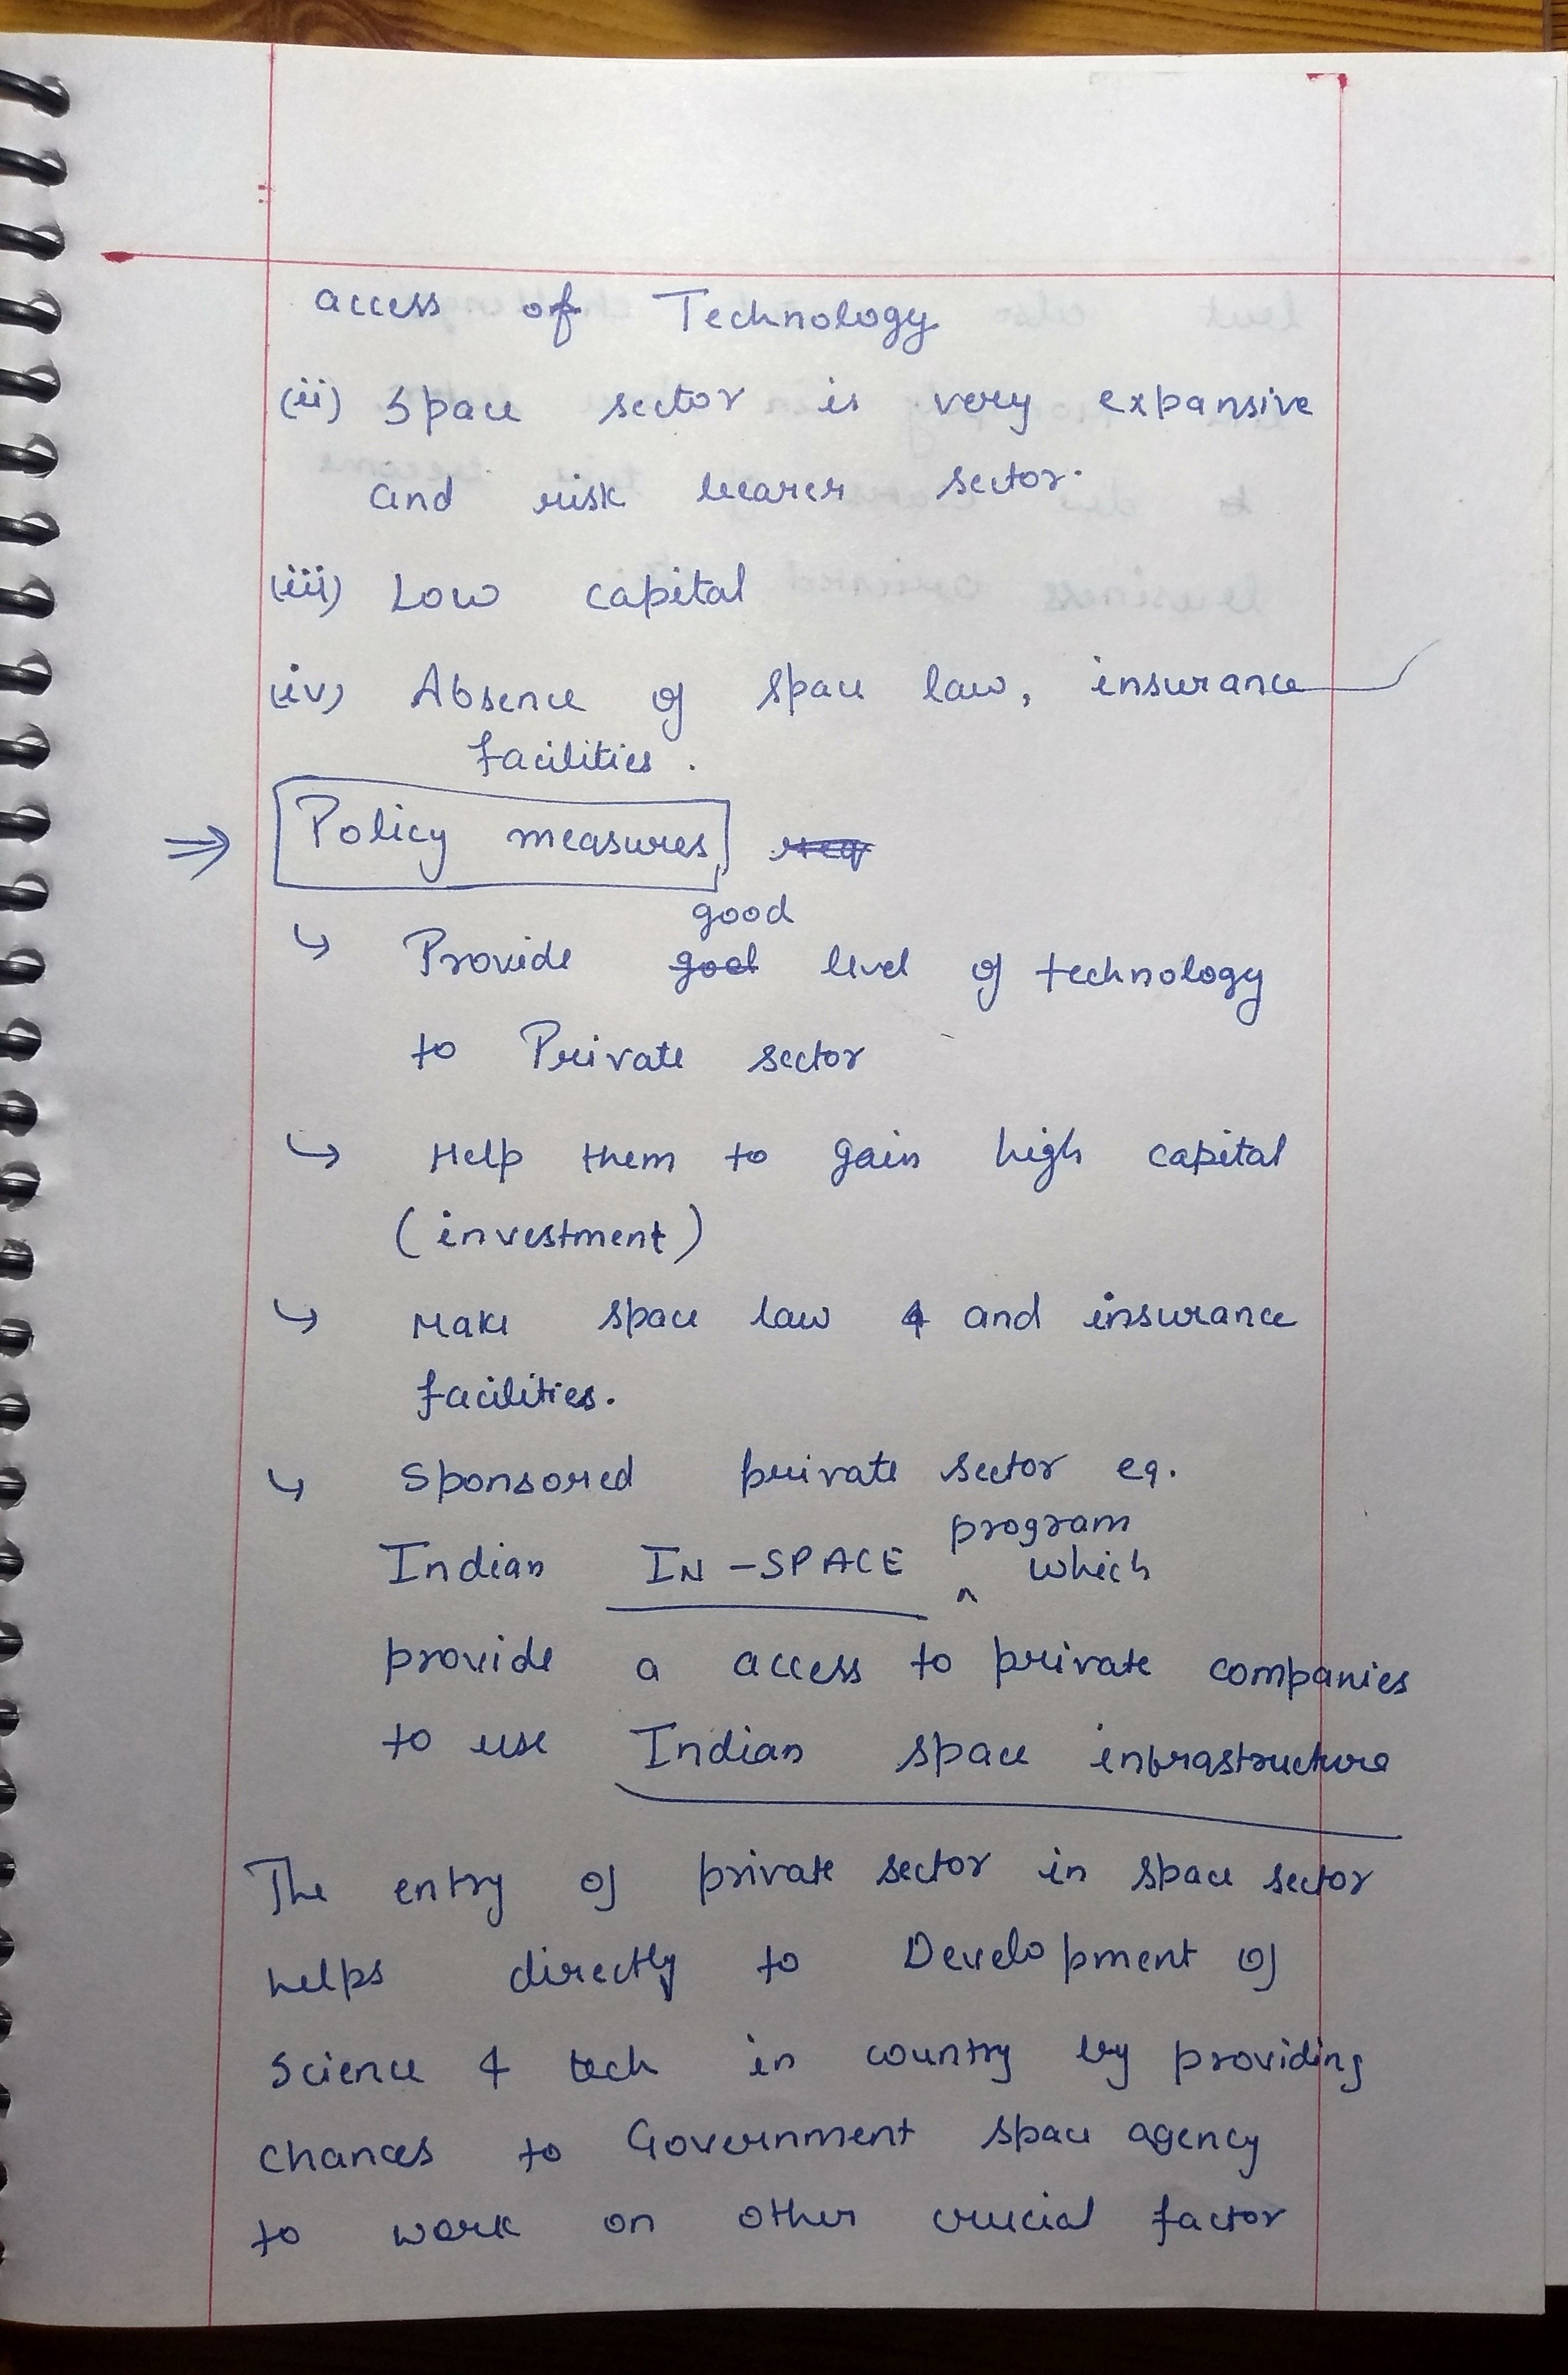 access of Technology
(ii) Space sector is very expansive
and risk bearer sector.
(iii) Low capital
(iv) Absence of space law, insurance
facilities.
⇒ Policy measures
good
↳ Provide level of technology
to Private sector
↳ Help them to gain high capital
(investment)
↳ Make space law & and insurance
facilities.
↳ Sponsored private sector eg.
program
Indian IN-SPACE ^ which
provide a access to private companies
to use Indian space infrastructure
The entry of private sector in space sector
helps directly to Development of
Science & tech in country by providing
chances to Government space agency
to work on other crucial factor